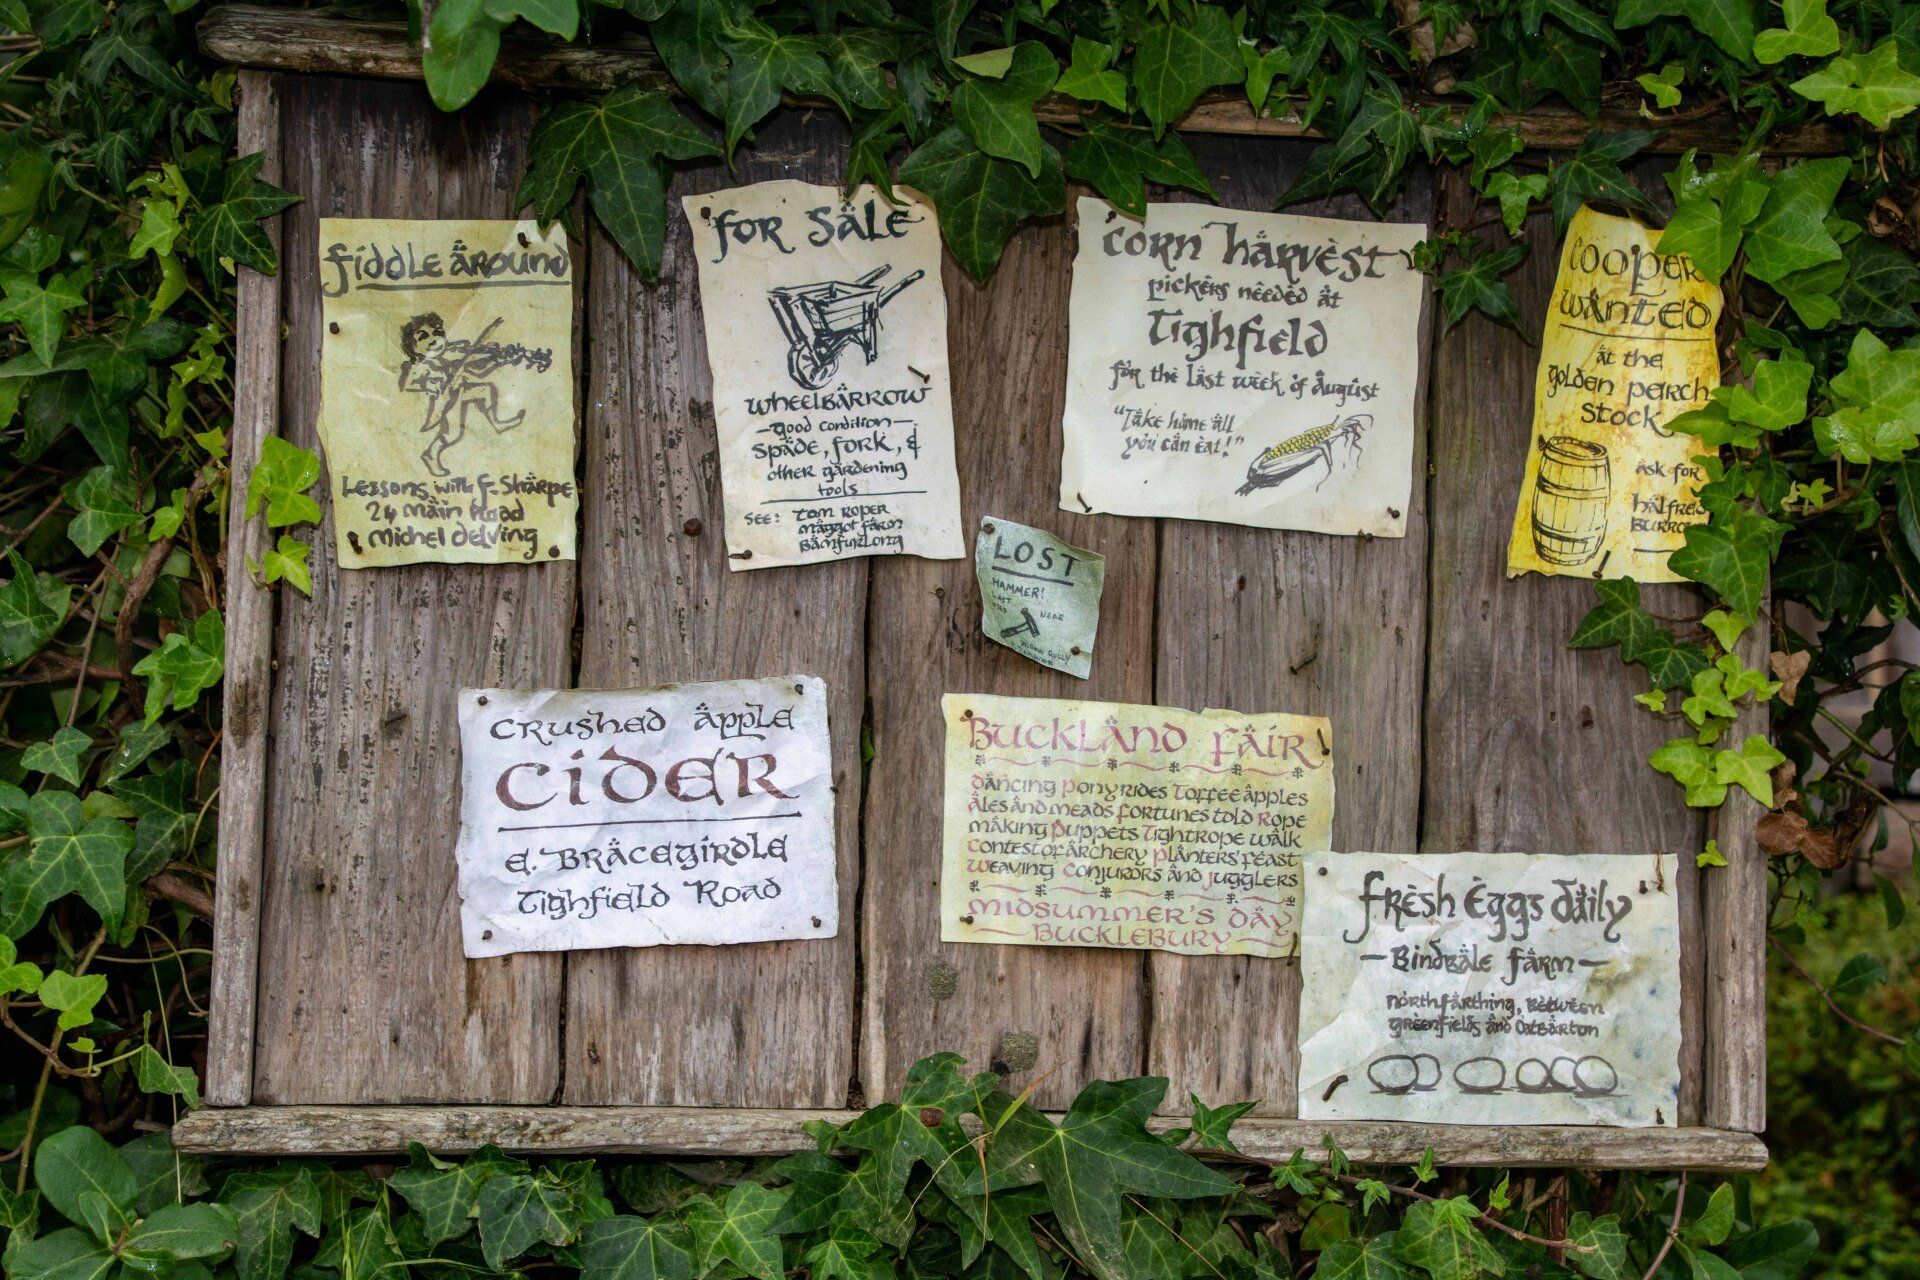 fiddle around
Lessons with f. Sharpe
24 Main Road
Michel delving
for Sale
wheelbarrow
good condition
spade, fork, &
other gardening
tools
see: tom roper
maggot farm
Bamfurlong
corn harvest
pickers needed at
Tighfield
for the last week of August
"Take home all
you can eat!"
cooper
wanted
at the
golden perch
stock
ask for
halfred
burrow
LOST
HAMMER!
LAST
NEAR
crushed apple
cider
e. Bracegirdle
Tighfield Road
Buckland fair
Dancing Pony rides Toffee apples
Ales and meads Fortunes told Rope
making Puppets Tightrope walk
Contest of Archery Planters feast
Weaving Conjurors and jugglers
midsummer's day
Bucklebury
fresh Eggs daily
Bindbale farm
northfarthing, Between
greenfields and Oatbarton